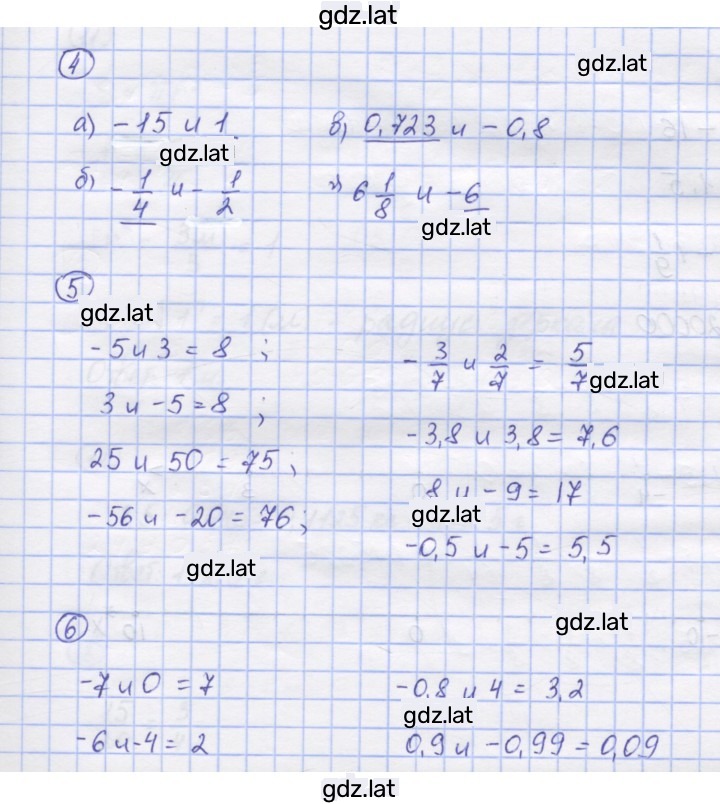 gdz.lat
4
gdz.lat
а) -15 и 1
в) 0,723 и -0,8
gdz.lat
б) -1/4 и -1/2
г) 6 1/8 и -6
gdz.lat
5
gdz.lat
-5 и 3 = 8 ;
-3/7 и 2/7 = 5/7
gdz.lat
3 и -5 = 8 ;
-3,8 и 3,8 = 7,6
25 и 50 = 75 ;
8 и -9 = 17
gdz.lat
-56 и -20 = 76 ;
-0,5 и -5 = 5,5
gdz.lat
6
gdz.lat
-7 и 0 = 7
-0.8 и 4 = 3,2
gdz.lat
-6 и -4 = 2
0,9 и -0,99 = 0,09
gdz.lat